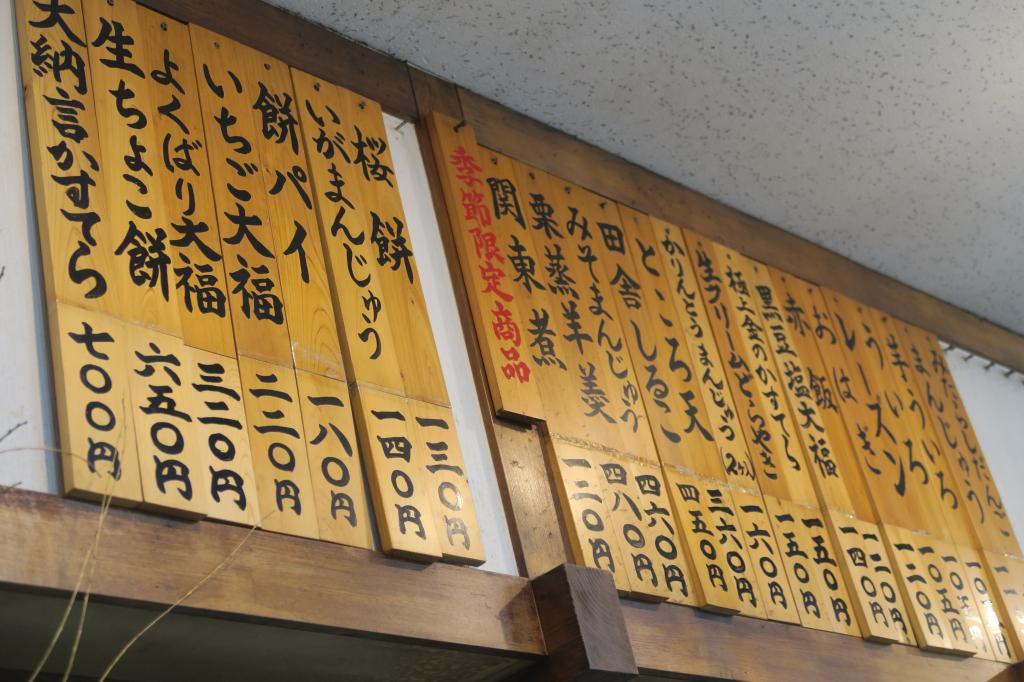 みたらしだんご
まんじゅう
おはぎ
赤飯
黒豆塩大福
極上金のかすてら
生クリームどらやき
かりんとうまんじゅう
ところ天
田舎しるこ
みそまんじゅう
栗蒸羊羹
関東煮
季節限定商品
一〇五円
一〇五円
一二〇円
一二〇円
一四〇円
一五〇円
一五〇円
一六〇円
三六〇円
四五〇円
四六〇円
四八〇円
一三〇円
桜餅 一三〇円
いがまんじゅう 一四〇円
餅パイ 一八〇円
いちご大福 二二〇円
よくばり大福 三三〇円
生ちょこ餅 六五〇円
大納言かすてら 七〇〇円